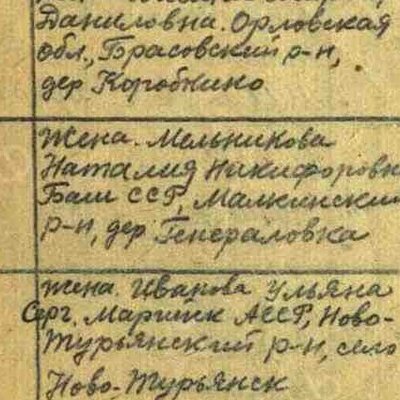 Даниловна. Орловская
обл., Брасовский р-н,
дер Коробкино
Жена. Мельникова
Наталия Никифоровн
Баш ССР, Малкинский
р-н, дер Генераловка
жена. Иванова Ульяна
Серг. Марийск АССР, Ново-
Турьянский р-н, село
Ново-Турьянск